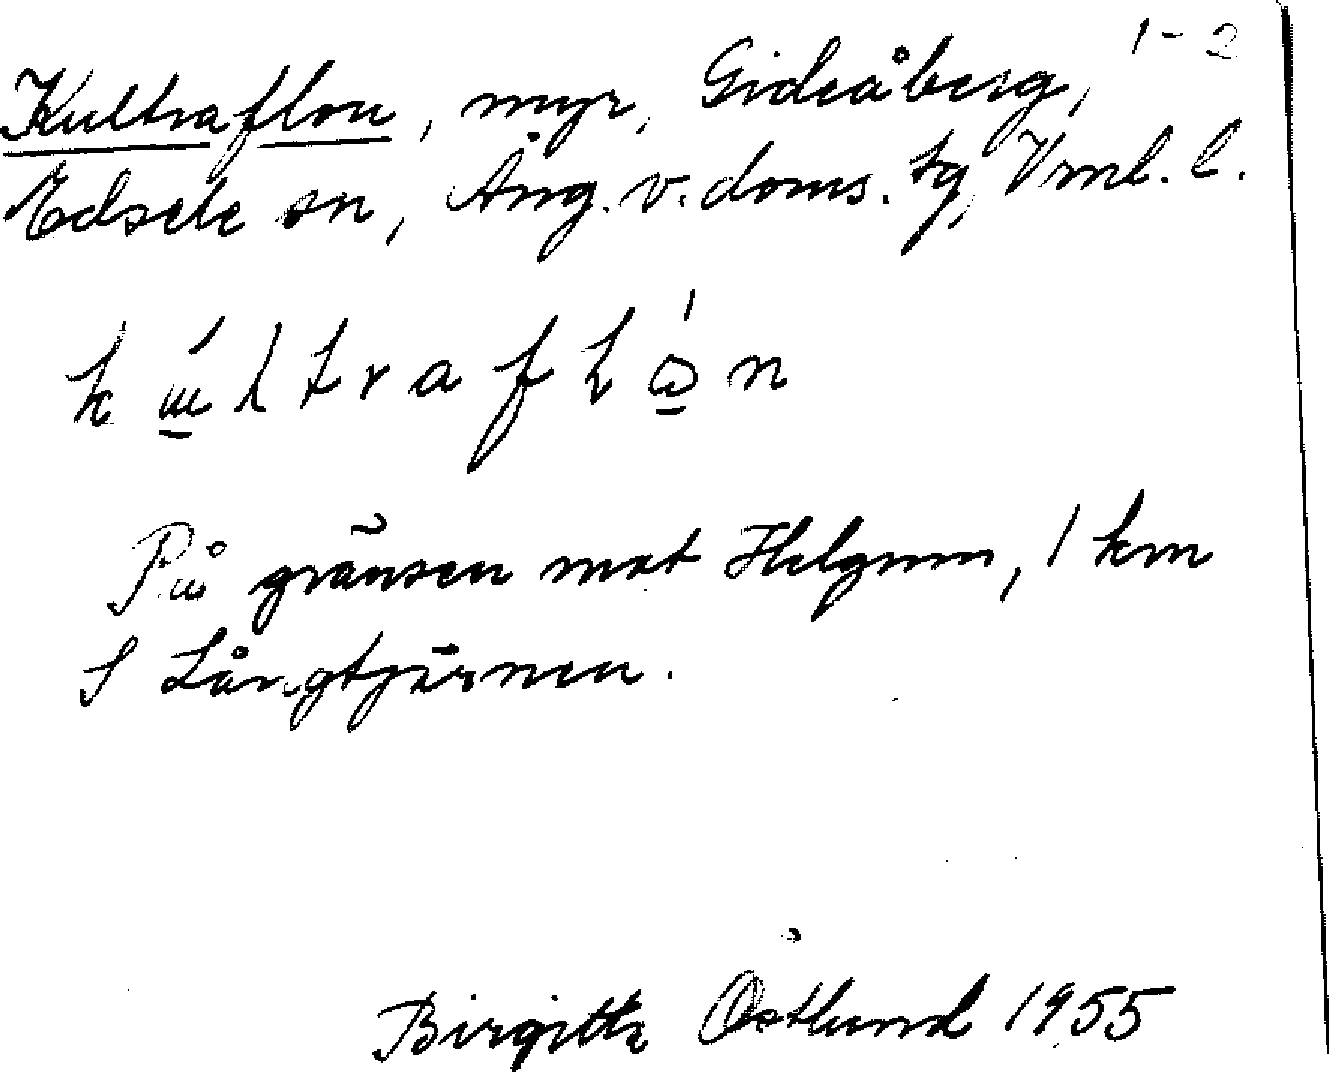 1-2
Kultraflon, myr, Gideåberg,
Edsele sn, Ång. v. doms. tg, Vrnl. l.
På gränsen mot Helgum, 1 km
S Långtjärnen.
Birgitta Östlund 1955